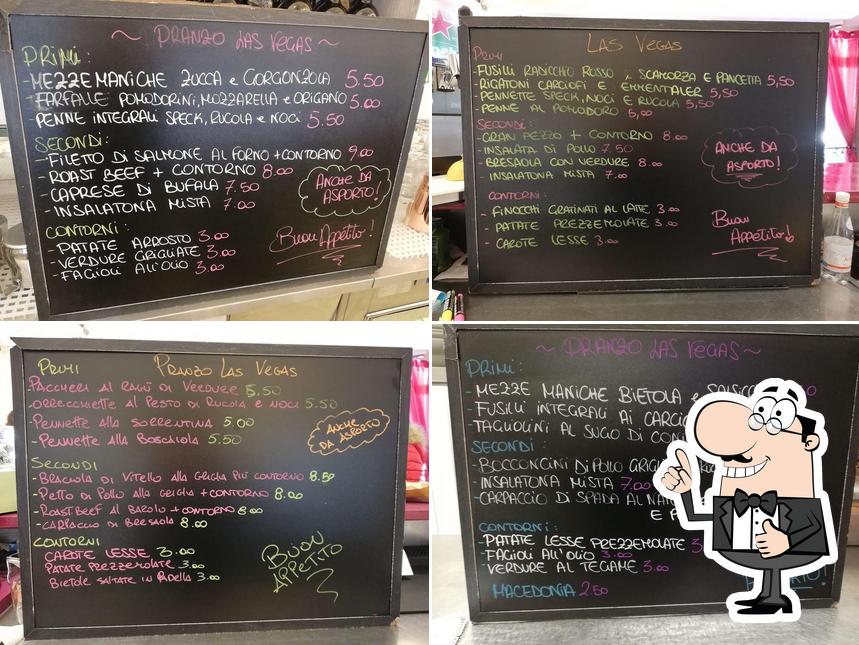 ~ PRANZO LAS VEGAS ~
PRIMI:
-MEZZE MANICHE ZUCCA e GORGONZOLA 5.50
-FARFALLE POMODORINI, MOZZARELLA e ORIGANO 5.00
PENNE INTEGRALI SPECK, RUCOLA e NOCI 5.50
SECONDI:
-FILETTO DI SALMONE AL FORNO + CONTORNO 9.00
- ROAST BEEF + CONTORNO 8.00
- CAPRESE DI BUFALA 7.50
- INSALATONA MISTA 7.00
ANCHE DA
ASPORTO!
CONTORNI:
- PATATE ARROSTO 3.00
- VERDURE GRIGLIATE 3.00
- FAGIOLI ALL'OLIO 3.00
Buon Appetito!
LAS VEGAS
PRIMI
-FUSILLI RADICCHIO ROSSO, SCAMORZA E PANCETTA 5,50
-RIGATONI CARCIOFI E EMMENTALER 5,50
-PENNETTE SPECK, NOCI E RUCOLA 5,50
-PENNE AL POMODORO 5,00
SECONDI:
-GRAN PEZZO + CONTORNO 8.00
-INSALATA DI POLLO 7.50
-BRESAOLA CON VERDURE 8.00
-INSALATONA MISTA 7.00
ANCHE DA
ASPORTO!
CONTORNI:
- FINOCCHI GRATINATI AL LATTE 3.00
- PATATE PREZZEMOLATE 3.00
- CAROTE LESSE 3.00
Buon
Appetito!
PRIMI PRANZO LAS VEGAS
-PACCHERI AL RAGÙ DI VERDURE 5.50
-ORRECCHIETTE AL PESTO DI RUCOLA E NOCI 5.50
-PENNETTE ALLA SORRENTINA 5.00
-PENNETTE ALLA BOSCAIOLA 5.50
ANCHE
DA ASPORTO
SECONDI
-BRACIOLA DI VITELLO ALLA GRIGLIA PIÙ CONTORNO 8.50
-PETTO DI POLLO ALLA GRIGLIA + CONTORNO 8.00
-ROAST BEEF AL BAROLO + CONTORNO 8.00
-CARPACCIO DI BRESAOLA 8.00
CONTORNI
CAROTE LESSE 3.00
PATATE PREZZEMOLATE 3.00
BIETOLE SALTATE IN PADELLA 3.00
BUON
APPETITO
~ PRANZO LAS VEGAS ~
PRIMI:
-MEZZE MANICHE BIETOLA e
-FUSILLI INTEGRALI AI
-TAGLIOLINI AL SUGO DI
SECONDI:
-BOCCONCINI DI POLLO
-INSALATONA MISTA 7.00
-CARPACCIO DI SPADA AL
E
CONTORNI:
- PATATE LESSE PREZZEMOLATE 3
- FAGIOLI ALL'OLIO 3.00
- VERDURE AL TEGAME 3.00
MACEDONIA 2.50